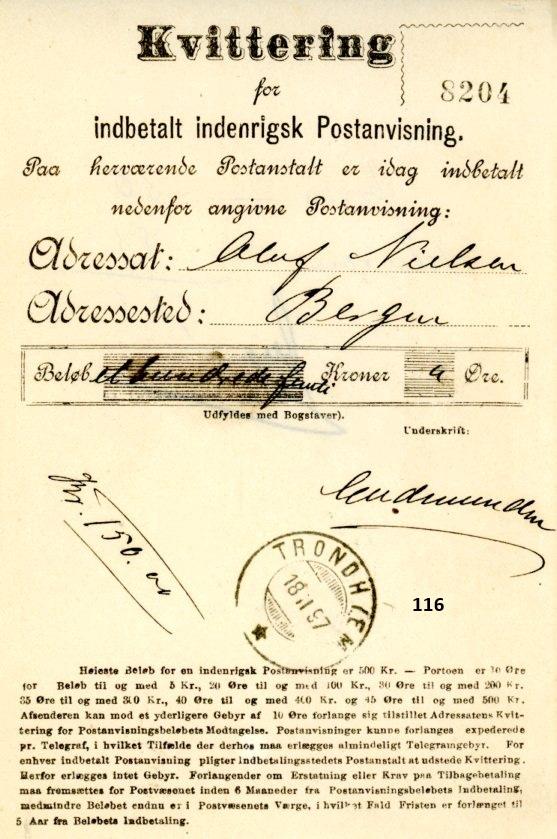 Kvittering
8204
for
indbetalt indenrigsk Postanvisning.
Paa herværende Postanstalt er idag indbetalt
nedenfor angivne Postanvisning:
Adressat: Oluf Nielsen
Adressested: Bergen
Beløb et hundrede femti Kroner " Øre.
Udfyldes med Bogstaver).
Underskrift:
Kr. 150.00
Gudmundsen
TRONDHJEM
18 II 97
116
Høieste Beløb for en indenrigsk Postanvisning er 500 Kr. — Portoen er 10 Øre
for Beløb til og med 5 Kr., 20 Øre til og med 100 Kr., 30 Øre til og med 200 Kr.
35 Øre til og med 300 Kr., 40 Øre til og med 400 Kr. og 45 Øre til og med 500 Kr.
Afsenderen kan mod et yderligere Gebyr af 10 Øre forlange sig tilstillet Adressatens Kvit-
tering for Postanvisningsbeløbets Modtagelse. Postanvisninger kunne forlanges expederede
pr. Telegraf, i hvilket Tilfælde der derhos maa erlægges almindeligt Telegramgebyr. For
enhver indbetalt Postanvisning pligter Indbetalingsstedets Postanstalt at udstede Kvittering.
Herfor erlægges intet Gebyr. Forlangender om Erstatning eller Krav paa Tilbagebetaling
maa fremsættes for Postvæsenet inden 6 Maaneder fra Postanvisningsbeløbets Indbetaling,
medmindre Beløbet endnu er i Postvæsenets Værge, i hvilket Fald Fristen er forlænget til
5 Aar fra Beløbets Indbetaling.